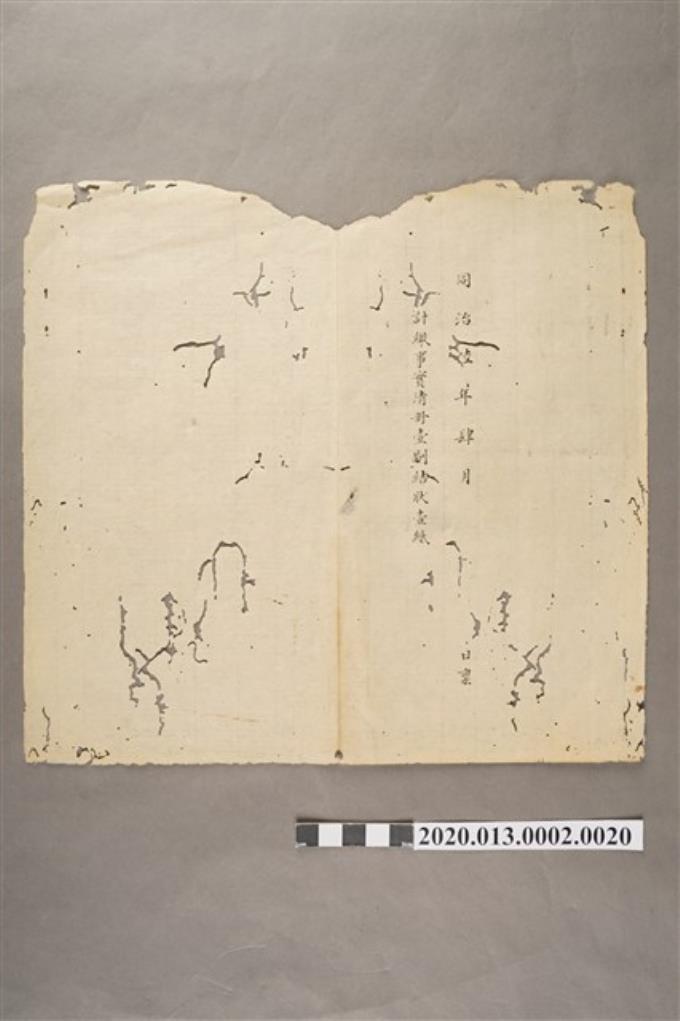 同治年肆月 日稟
計繳事實清冊壹副結狀壹紙
2020.013.0002.0020